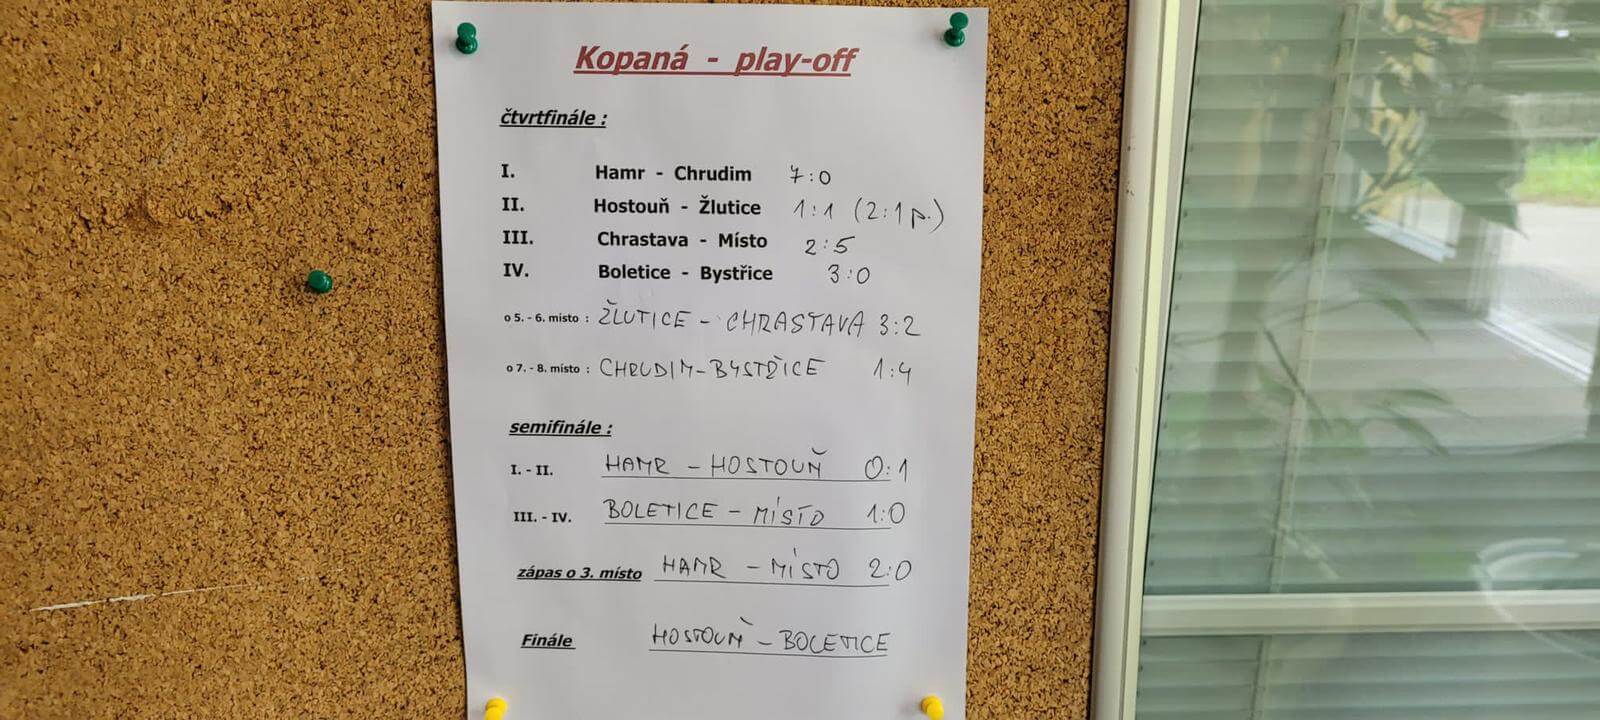 Kopaná - play-off
čtvrtfinále :
I. Hamr - Chrudim 7:0
II. Hostouň - Žlutice 1:1 (2:1 p.)
III. Chrastava - Místo 2:5
IV. Boletice - Bystřice 3:0
o 5. - 6. místo : ŽLUTICE - CHRASTAVA 3:2
o 7. - 8. místo : CHRUDIM - BYSTŘICE 1:4
semifinále :
I. - II. HAMR - HOSTOUŇ 0:1
III. - IV. BOLETICE - MÍSTO 1:0
zápas o 3. místo HAMR - MÍSTO 2:0
Finále HOSTOUŇ - BOLETICE